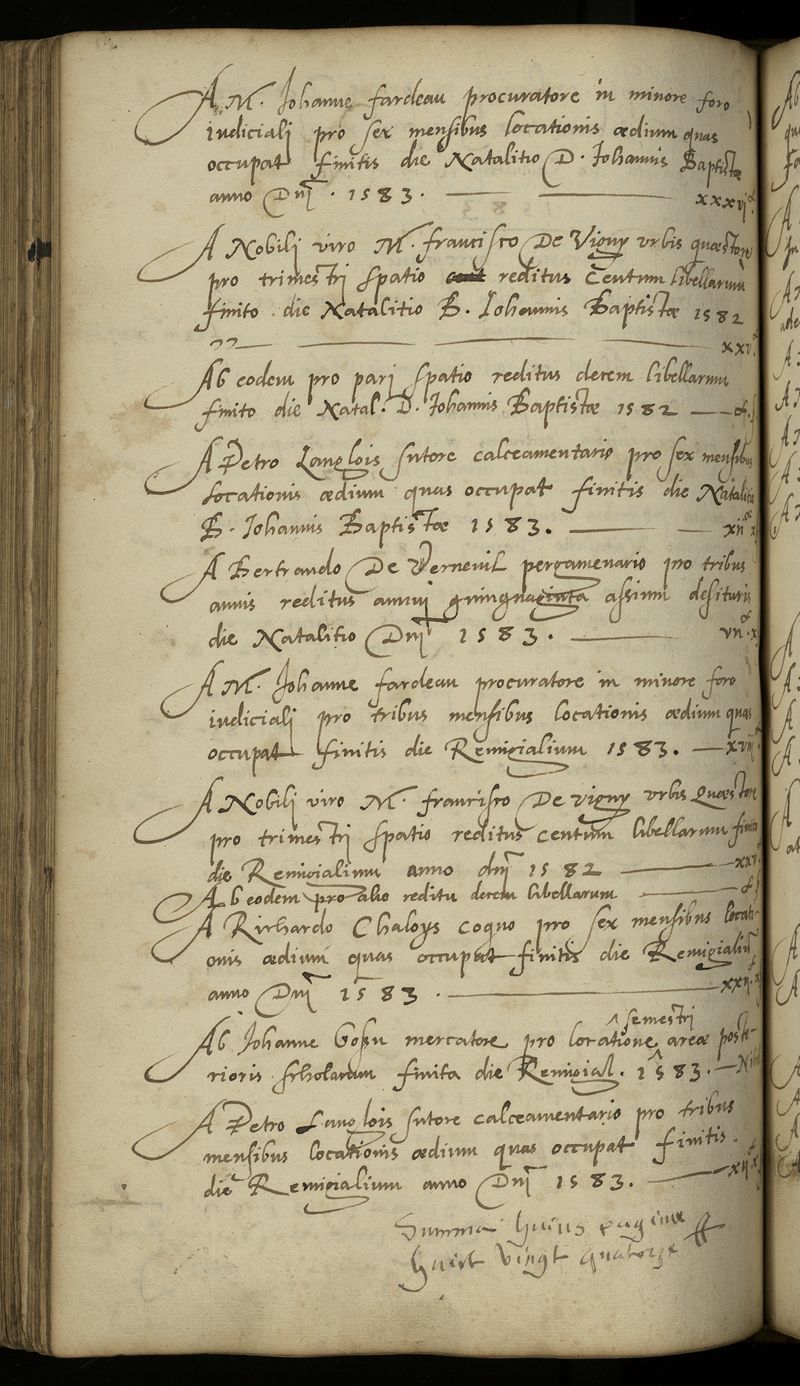 A M. Johanne fardeau procuratore in minore foro
iudiciali pro sex mensibus locationis ædium quas
occupat finitis die Natalitio D. Johannis Baptistæ
anno Dnj . 1583. xxxvj
A Nobili viro M. francisco De Vigny vrbis quæstore
pro trimestri spatio reditus Centum libellarum
finito die Natalitio B. Johannis Baptistæ 1582
xxv
Ab eodem pro pari spatio reditus decem libellarum
finito die Natal. D. Johannis Baptistæ 1582
A Petro Langlois sutore calceamentario pro sex mensibus
locationis ædium quas occupat finitis die Natalitio
B. Johannis Baptistæ 1583. xij
A Bertrando De Vernevil pergamenario pro tribus
annis reditus annuj quinquaginta assium desituris
die Natalitio Dnj 1583. vij
A M. Johanne fardeau procuratore in minore foro
iudiciali pro tribus mensibus locationis ædium quas
occupat finitis die Remigialium 1583. xviij
A Nobili viro M. francisco De vigny vrbis Quæstore
pro trimestri spatio reditus centum libellarum finito
die Remigialium anno dnj 1582 xxv
Ab eodem pro alio reditu decem libellarum
A Richardo Chaloys coquo pro sex mensibus locati-
onis ædium quas occupat finitis die Remigialium
anno Dnj 1583. xxij
semestri
Ab Johanne Gossu mercatore pro locatione areæ poste-
rioris scholarum finita die Remigial. 1583.
A Petro Langlois sutore calceamentario pro tribus
mensibus locationis ædium quas occupat finitis
die Remigialium anno Dnj 1583. xij
Summa huius paginæ
huict vingt quatorze